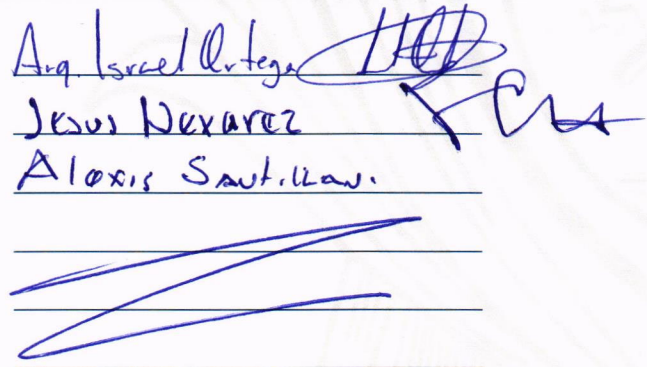 Arq. Israel Ortega
Jesus Nevarez
Alexis Santillan.